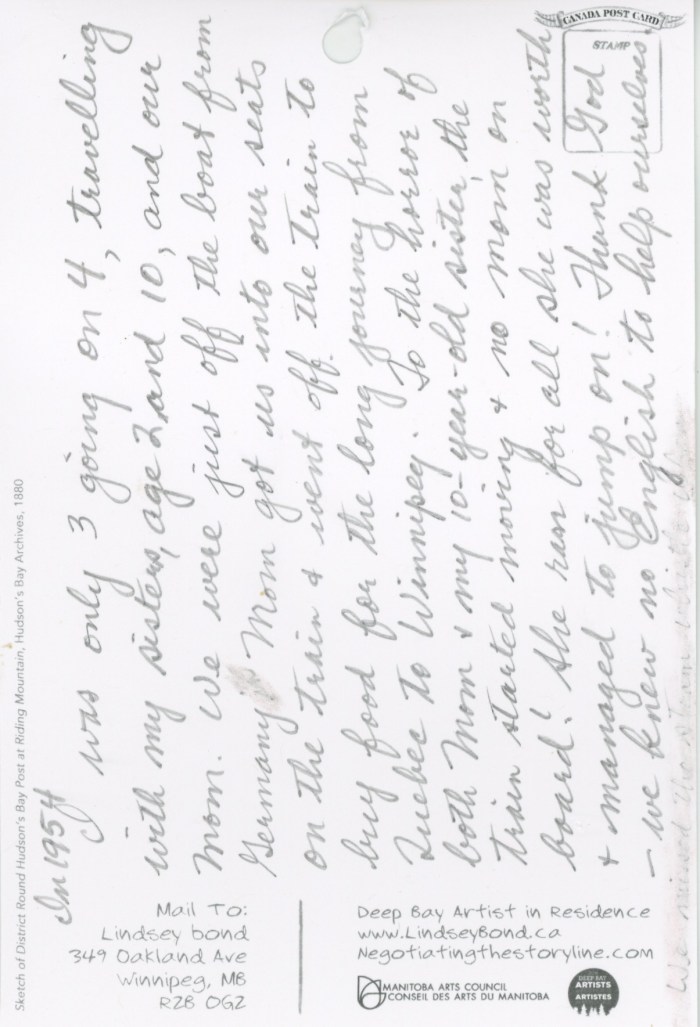 CANADA POST CARD
STAMP
In 1954
I was only 3 going on 4, travelling
with my sisters, age 2 and 10, and our
Mom. We were just off the boat from
Germany. Mom got us into our seats
on the train & went off the train to
buy food for the long journey from
Quebec to Winnipeg. To the horror of
both Mom & my 10-year-old sister, the
train started moving & no mom on
board! She ran for all she was worth
& managed to jump on! Thank God
- we knew no English to help ourselves.
Sketch of District Round Hudson's Bay Post at Riding Mountain, Hudson's Bay Archives, 1880
Mail To:
Lindsey bond
349 Oakland Ave
Winnipeg, MB
R2B 0G2
Deep Bay Artist in Residence
www.LindseyBond.ca
Negotiatingthestoryline.com
MANITOBA ARTS COUNCIL
CONSEIL DES ARTS DU MANITOBA
DEEP BAY
ARTISTS
ARTISTES